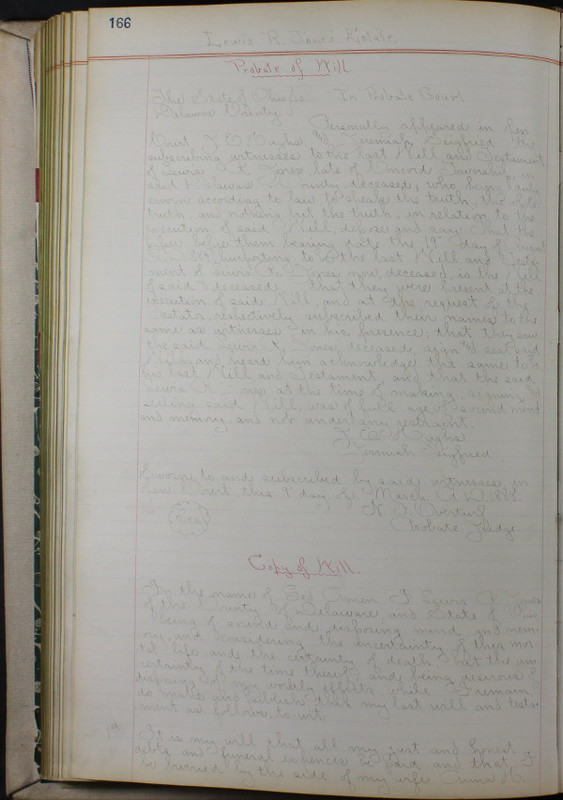 166
Lewis R. Jones Estate.
Probate of Will
The State of Ohio ss. In Probate Court
Delaware County
Personally appeared in open
Court J. C. Hughs and Jeremiah Seigfried the
subscribing witnesses to the last Will and Testament
of Lewis R. Jones late of Concord Township, in
said Delaware County, deceased, who being duly
sworn according to law to speak the truth, the whole
truth, and nothing but the truth, in relation to the
execution of said Will, depose and say: That the
paper before them bearing date the 19th day of
purporting to be the last Will and Testa-
ment of Lewis R. Jones now deceased, is the Will
of said deceased that they were present at the
execution of said Will, and at the request of the
Testator, respectively subscribed their names to the
same as witnesses in his presence; that they saw
the said Lewis R. Jones, deceased, sign and seal said
Will, and heard him acknowledge the same to be
his last Will and Testament, and that the said
Lewis R. Jones, at the time of making, signing and
sealing said Will, was of full age, of sound mind
and memory, and not under any restraint.
J. C. Hughs
Jeremiah Seigfried
Sworn to and subscribed by said witnesses, in
open Court this day of March A.D. 188
N. F. Overturf
Seal Probate Judge
Copy of Will.
In the name of God Amen I Lewis R. Jones
of the County of Delaware and State of Ohio
being of sound and disposing mind and mem-
ory, and considering the uncertainty of this mor-
tal life and the certainty of death but the un
certainty of the time thereof and being desirous of
disposing of my worldly effects while I remain
do make and publish this my last will and testa-
ment as follows to wit:
1st It is my will that all my just and honest
debts and funeral expences be paid and that I
be burried by the side of my wife Anna